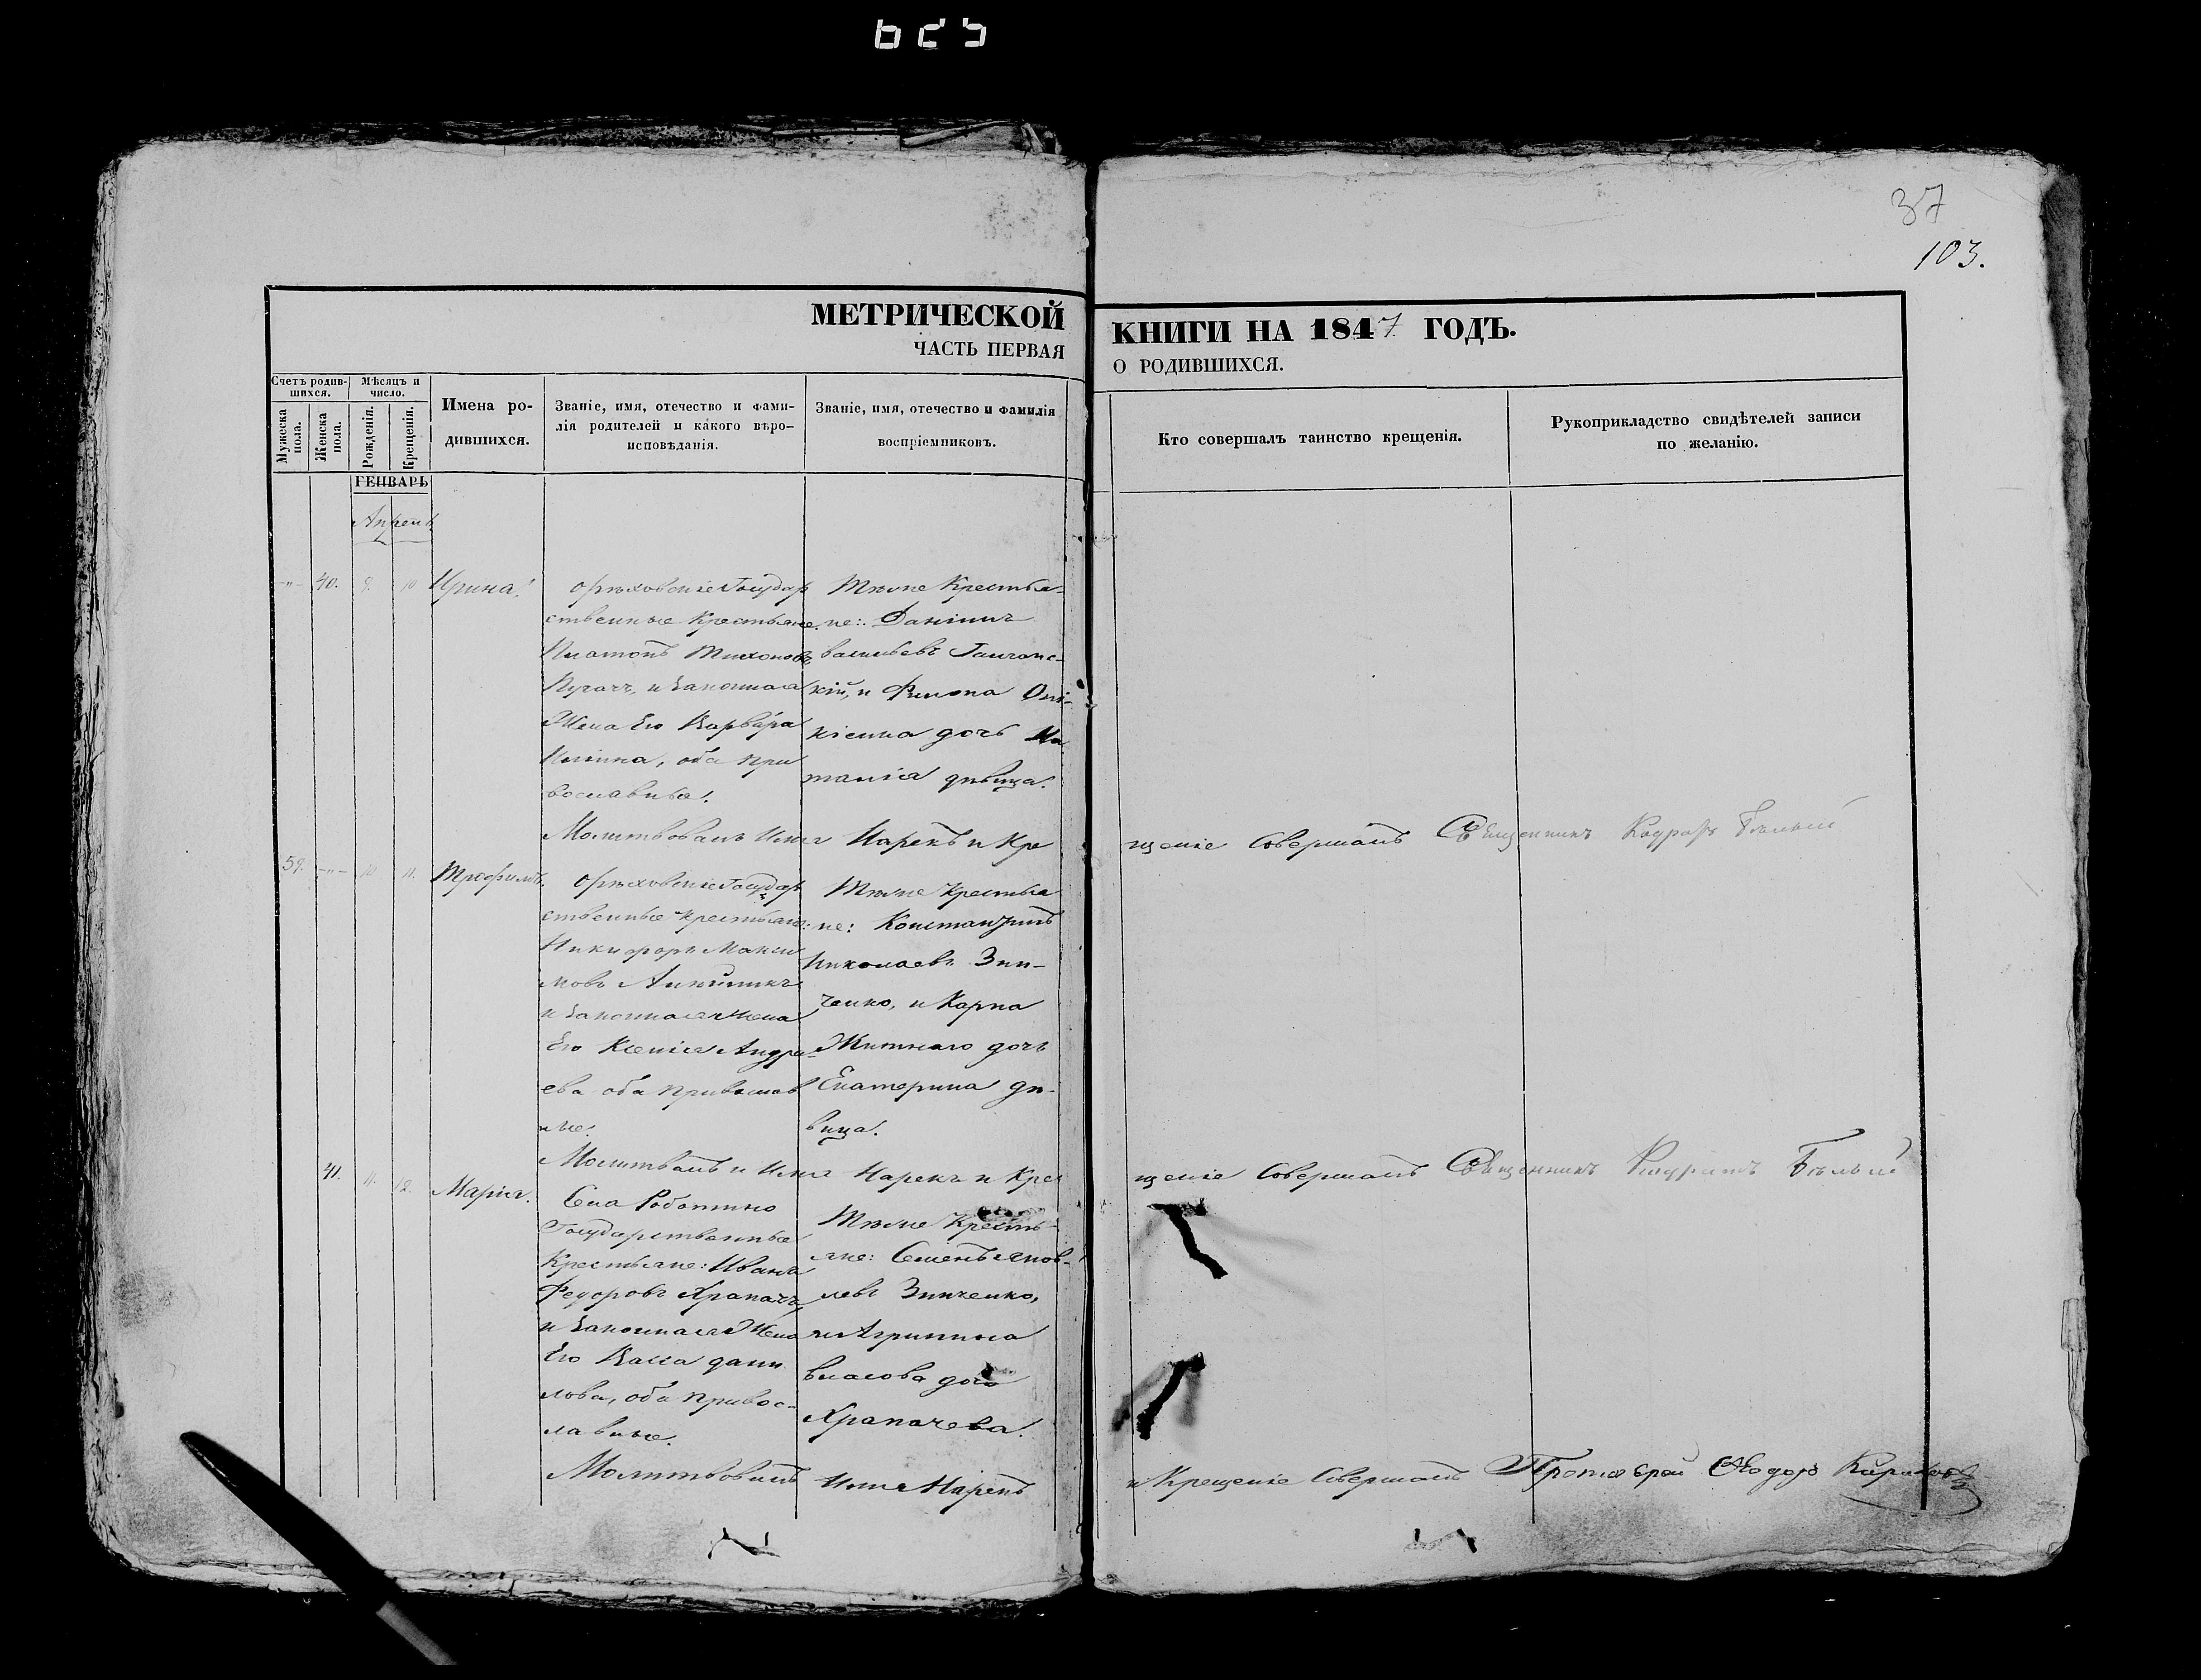 37
103.
МЕТРИЧЕСКОЙ
ЧАСТЬ ПЕРВАЯ
КНИГИ НА 1847 ГОДЪ.
О РОДИВШИХСЯ.
Счетъ родив-
шихся.
Мужеска пола.
Женска пола.
Мѣсяцъ и
число.
Рожденія.
Крещенія.
Имена ро-
дившихся.
Званіе, имя, отечество и фами-
лія родителей и какого вѣро-
исповѣданія.
Званіе, имя, отечество и фамилія
воспріемниковъ.
Кто совершалъ таинство крещенія.
Рукоприкладство свидѣтелей записи
по желанію.
ГЕНВАРЬ
Апрель
40. 10 Ирина.
Орѣховскіе Государ
ственные Крестьяне
Платонъ Тихоновъ
Пугачъ, и законная
Жена Его Варвара
оба пра
вославные.
Тѣже Крестья-
не: Даніилъ
Васильевъ
кій, и
дочь На
талія дѣвица.
Молитвовалъ Имя Нарекъ и Кре
щеніе Совершалъ Священникъ Кодратъ Бѣлый
59. 10 11. Трефилъ.
Орѣховскіе Государ
ственные крестьяне:
Никифоръ Макси
мовъ
и законная Жена
Его Ксенія Андре-
ева оба православ
ные.
Тѣже крестья
не: Константинъ
Николаевъ Зин-
ченко, и Карпа
Житнаго дочь
Екатерина дѣ-
вица.
Молитвалъ и Имя Нарекъ и Кре
щеніе Совершалъ Священникъ Кодратъ Бѣлый
41. 11. 12. Марія.
Села Роботино
Государственные
Крестьяне: Иванъ
Федоровъ Храпачъ,
и законная Жена
Его Васса дани
лова, оба правос-
лавные.
Тѣже Кресть-
яне: Семенъ Яков-
левъ Зинченко,
и Агрипина
Власова дочь
Храпачева.
Молитвовалъ Имя Нарекъ
и Крещеніе Совершалъ Протоіерей Ѳеодоръ